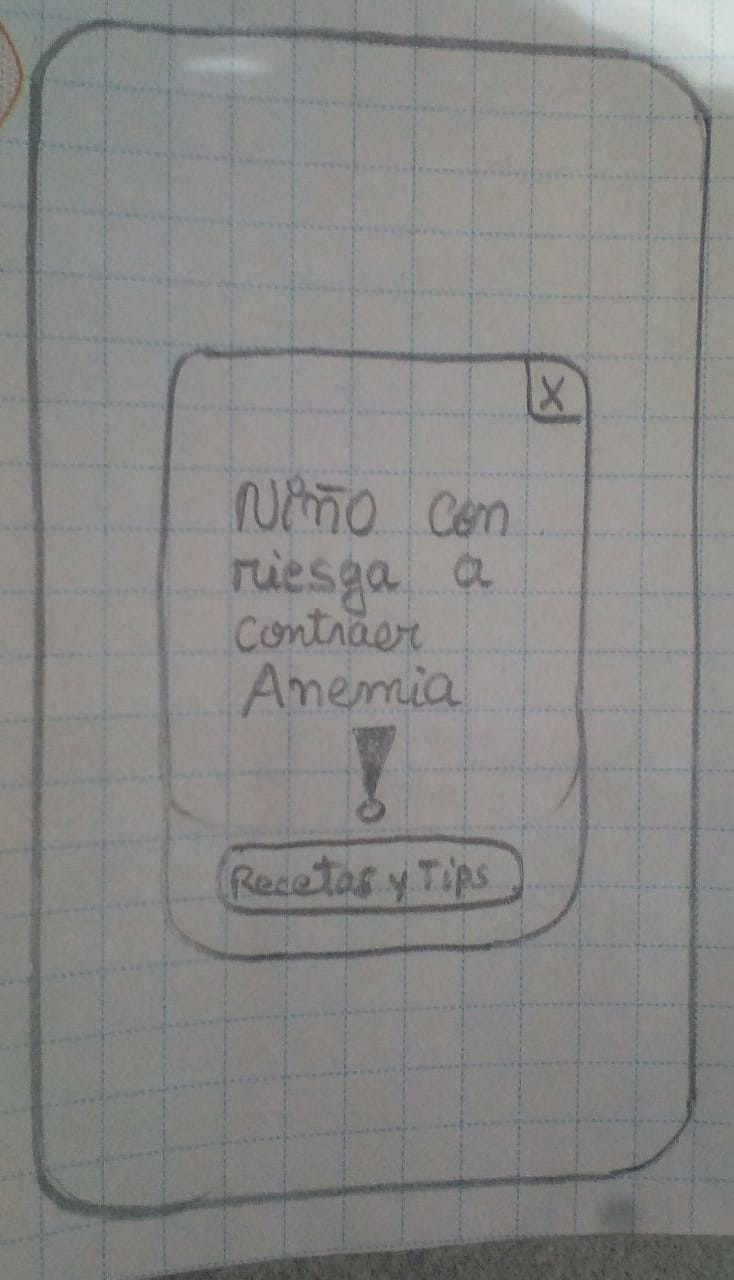 X
Niño con
riesga a
contraer
Anemia
!
Recetas y Tips